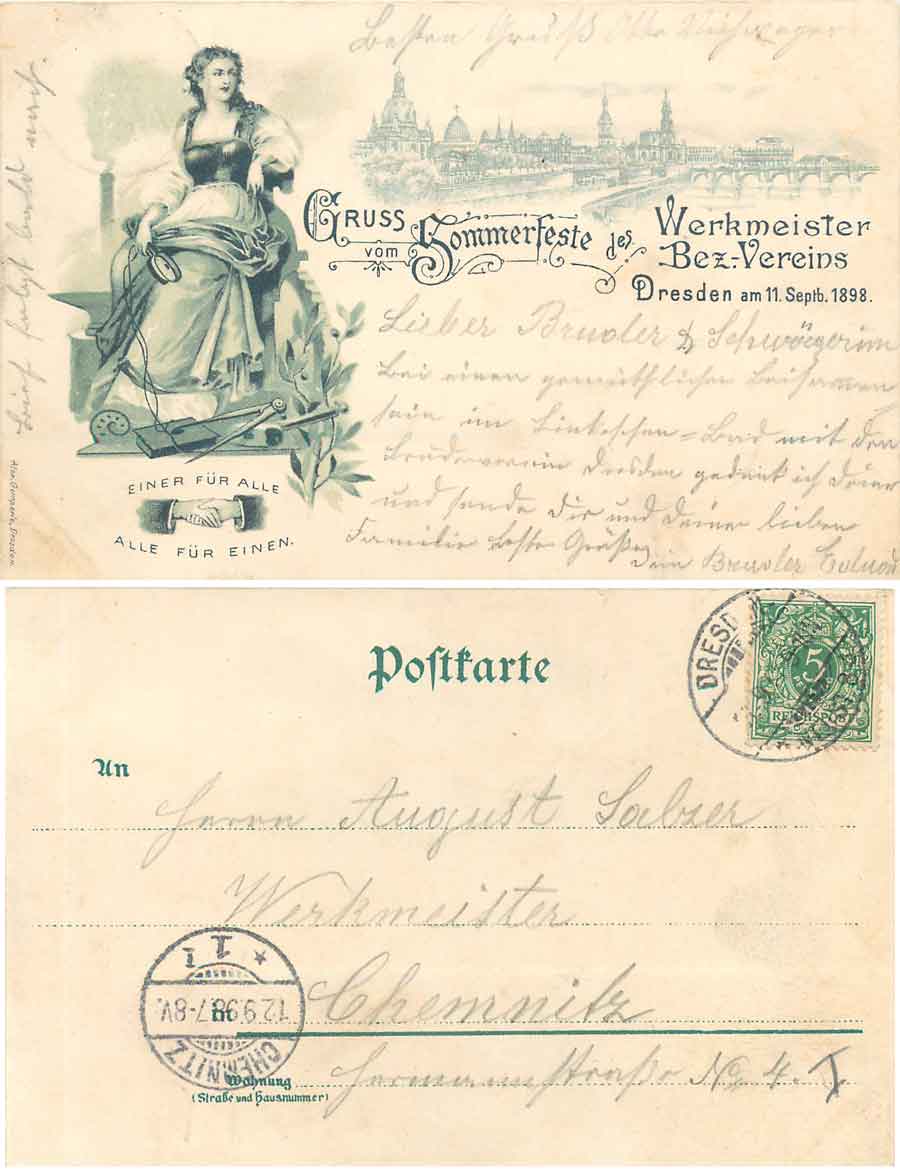 Besten Gruß Otto
Brief folgt bald nach.
GRUSS
vom Sommerfeste des
Werkmeister
Bez.-Vereins
Dresden am 11. Septb. 1898.
Lieber Bruder & Schwägerin
Bei einen gemüthlichen Beisammen
sein im Linkeschen-Bad mit den
Bruderverein Dresden gedenk ich Deiner
und sende Dir und Deiner lieben
Familie beste Grüße
Dein Bruder
EINER FÜR ALLE
ALLE FÜR EINEN.
Dresden
Postkarte
DRESD
5
REICHSPOST
An
Herrn August Salzer
Werkmeister
in Chemnitz
Wohnung
(Straße und Hausnummer)
Hermannstraße No 4. I
CHEMNITZ
12.9.98.7-8V.
* 1 1